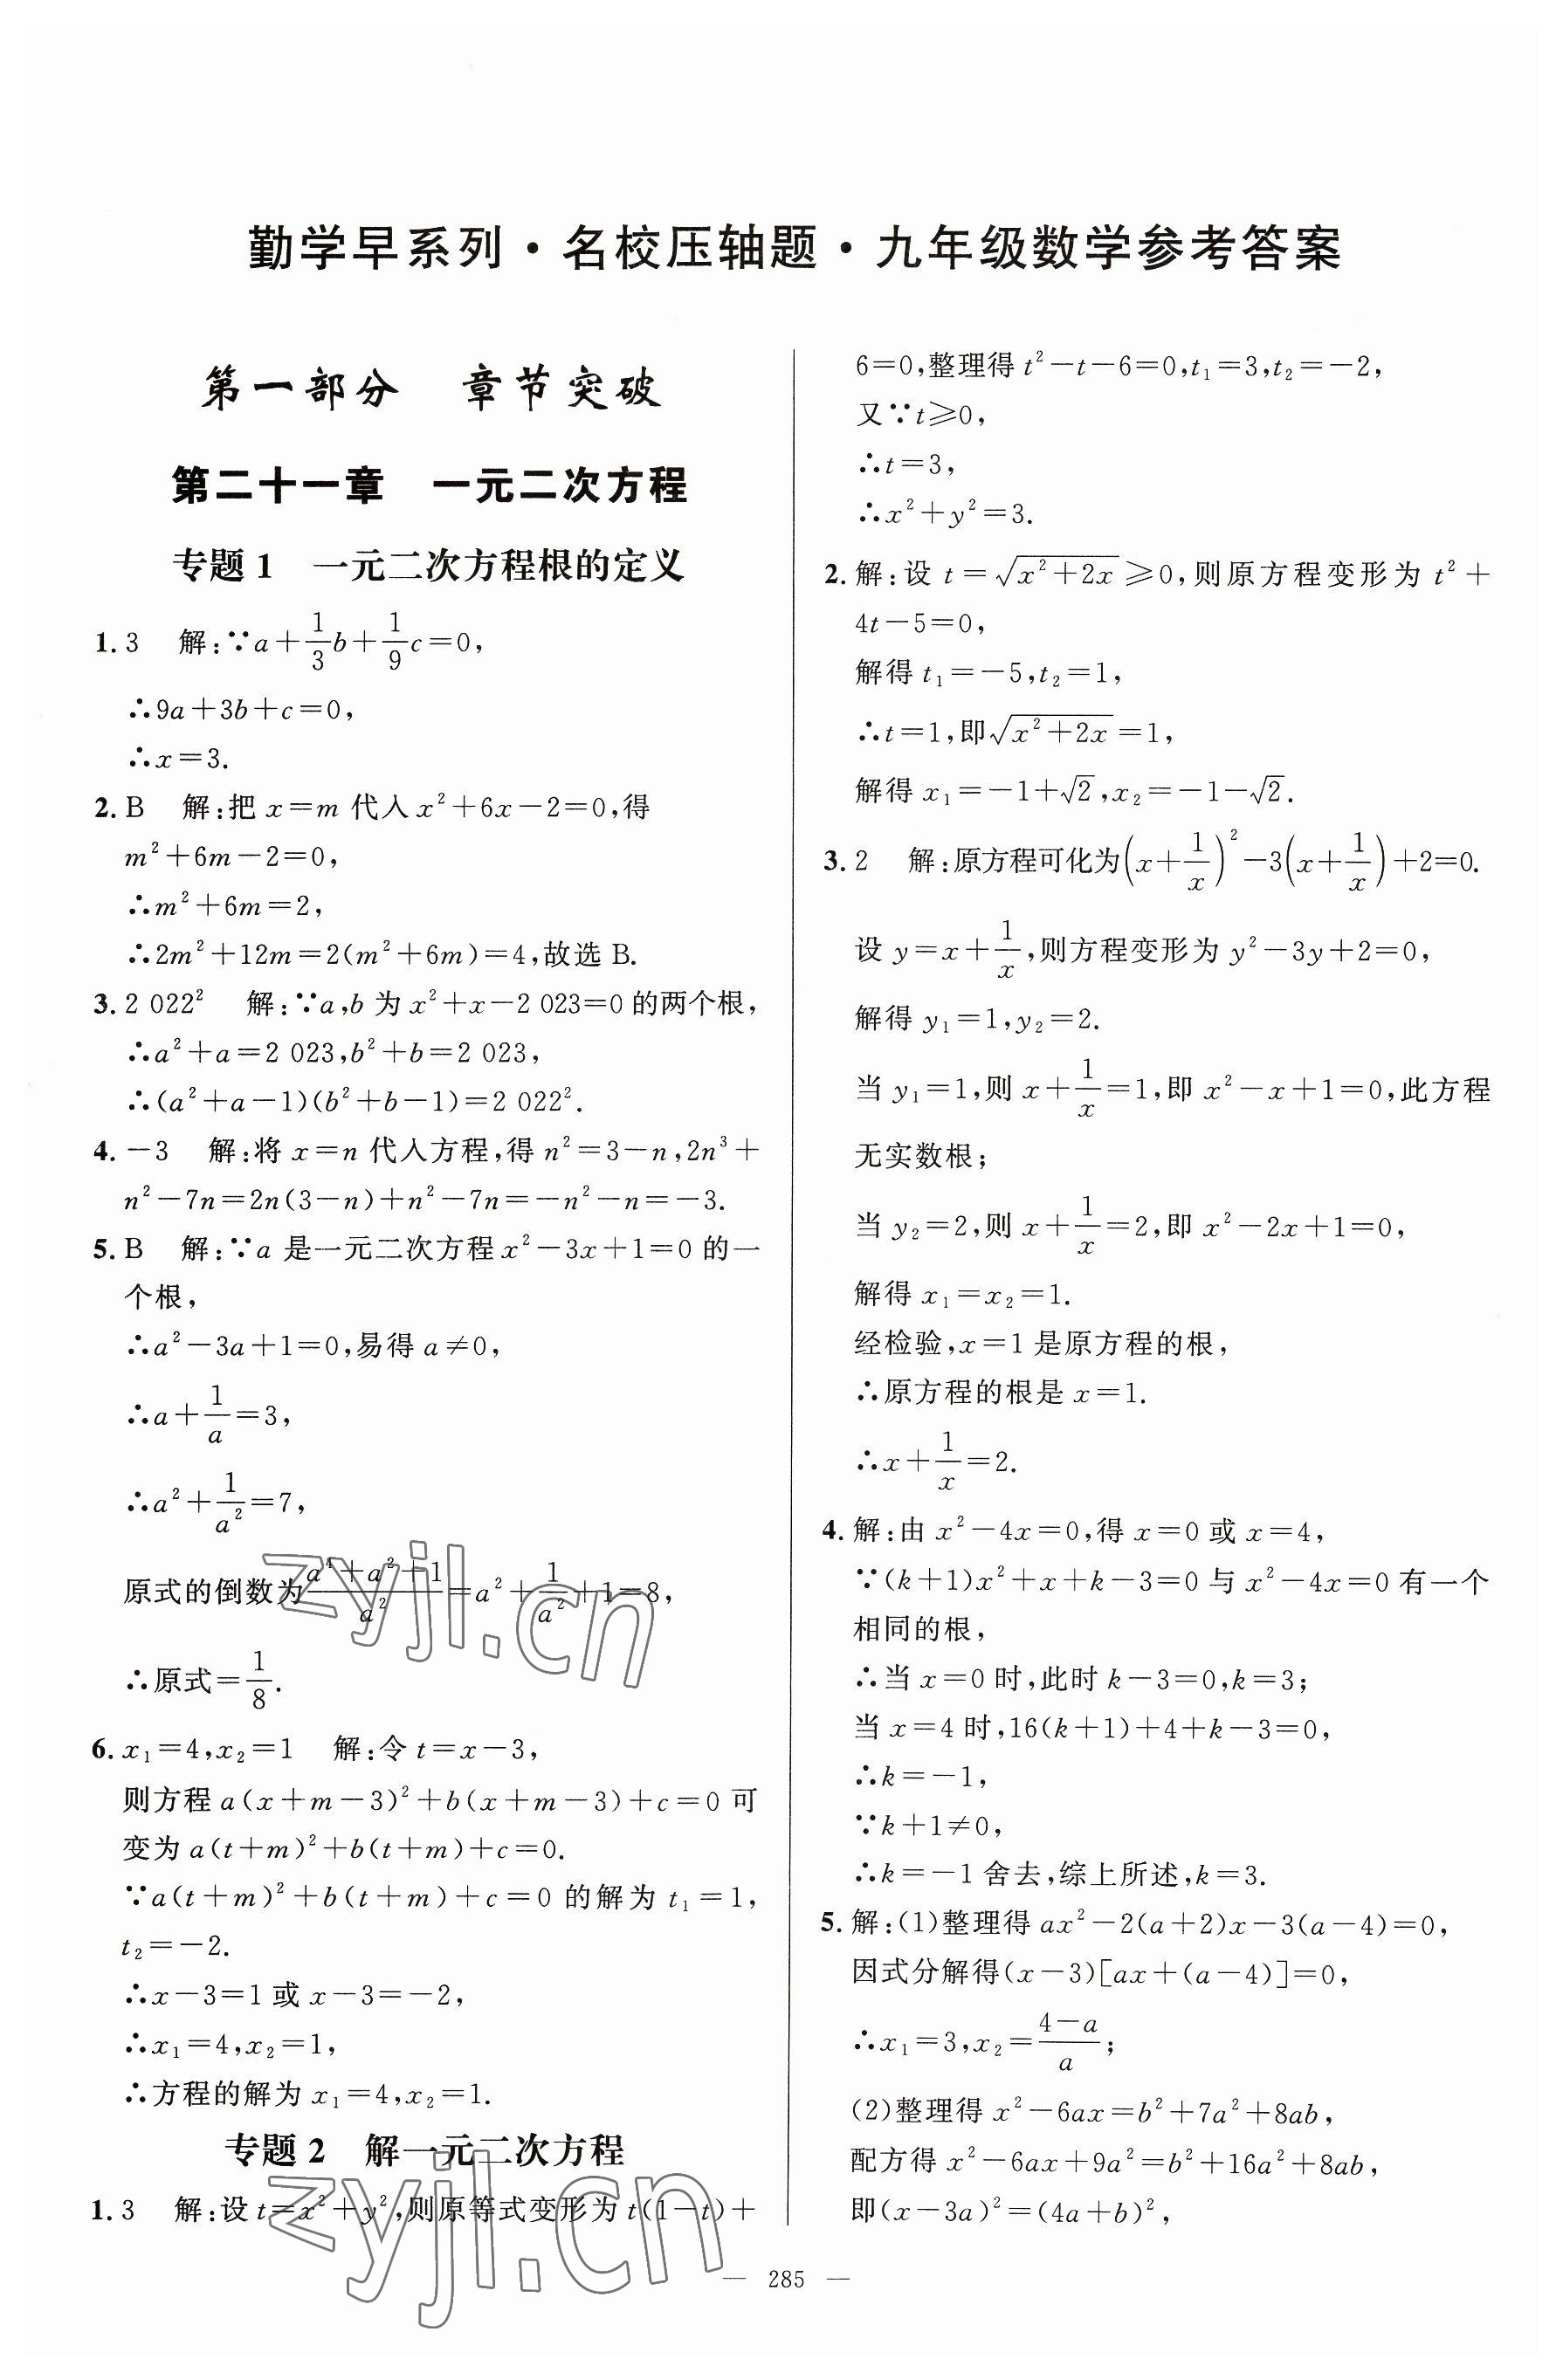 勤学早系列·名校压轴题·九年级数学参考答案
第一部分 章节突破
第二十一章 一元二次方程
专题1 一元二次方程根的定义
1. 3 解:∵a+\frac{1}{3}b+\frac{1}{9}c=0,
∴9a+3b+c=0,
∴x=3.
2. B 解:把 x=m 代入 x²+6x-2=0,得
m²+6m-2=0,
∴m²+6m=2,
∴2m²+12m=2(m²+6m)=4,故选 B.
3. 2 022² 解:∵a,b 为 x²+x-2 023=0 的两个根,
∴a²+a=2 023,b²+b=2 023,
∴(a²+a-1)(b²+b-1)=2 022².
4. -3 解:将 x=n 代入方程,得 n²=3-n,2n³+
n²-7n=2n(3-n)+n²-7n=-n²-n=-3.
5. B 解:∵a 是一元二次方程 x²-3x+1=0 的一
个根,
∴a²-3a+1=0,易得 a≠0,
∴a+\frac{1}{a}=3,
∴a²+\frac{1}{a²}=7,
原式的倒数为\frac{a⁴+a²+1}{a²}=a²+\frac{1}{a²}+1=8,
∴原式=\frac{1}{8}.
6. x₁=4,x₂=1 解:令 t=x-3,
则方程 a(x+m-3)²+b(x+m-3)+c=0 可
变为 a(t+m)²+b(t+m)+c=0.
∵a(t+m)²+b(t+m)+c=0 的解为 t₁=1,
t₂=-2.
∴x-3=1 或 x-3=-2,
∴x₁=4,x₂=1,
∴方程的解为 x₁=4,x₂=1.
专题2 解一元二次方程
1. 3 解:设 t=x²+y²,则原等式变形为 t(1-t)+
6=0,整理得 t²-t-6=0,t₁=3,t₂=-2,
又∵t≥0,
∴t=3,
∴x²+y²=3.
2. 解:设 t=√(x²+2x)≥0,则原方程变形为 t²+
4t-5=0,
解得 t₁=-5,t₂=1,
∴t=1,即√(x²+2x)=1,
解得 x₁=-1+√2,x₂=-1-√2.
3. 2 解:原方程可化为(x+\frac{1}{x})²-3(x+\frac{1}{x})+2=0.
设 y=x+\frac{1}{x},则方程变形为 y²-3y+2=0,
解得 y₁=1,y₂=2.
当 y₁=1,则 x+\frac{1}{x}=1,即 x²-x+1=0,此方程
无实数根;
当 y₂=2,则 x+\frac{1}{x}=2,即 x²-2x+1=0,
解得 x₁=x₂=1.
经检验,x=1 是原方程的根,
∴原方程的根是 x=1.
∴x+\frac{1}{x}=2.
4. 解:由 x²-4x=0,得 x=0 或 x=4,
∵(k+1)x²+x+k-3=0 与 x²-4x=0 有一个
相同的根,
∴当 x=0 时,此时 k-3=0,k=3;
当 x=4 时,16(k+1)+4+k-3=0,
∴k=-1,
∵k+1≠0,
∴k=-1 舍去,综上所述,k=3.
5. 解:(1)整理得 ax²-2(a+2)x-3(a-4)=0,
因式分解得(x-3)[ax+(a-4)]=0,
∴x₁=3,x₂=\frac{4-a}{a};
(2)整理得 x²-6ax=b²+7a²+8ab,
配方得 x²-6ax+9a²=b²+16a²+8ab,
即(x-3a)²=(4a+b)²,
— 285 —
zyjl.cn
zyjl.cn